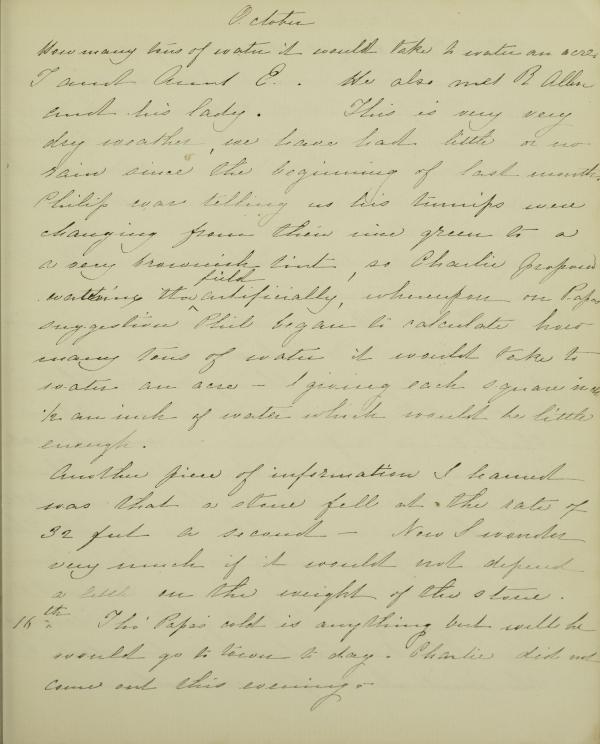 October
How many tons of water it would take to water an acre.
I and Aunt E. . He also met R Allen
and his lady. This is very very
dry weather, we have had little or no
rain since the beginning of last month.
Philip was telling us his turnips were
changing from their nice green to a
a very brownish tint, so Charlie proposed
watering the field artificially, whereupon on Papa's
suggestion Phil began to calculate how
many tons of water it would take to
water an acre - giving each square inch
1/2 an inch of water which would be little
enough.
Another piece of information I learned
was that a stone fell at the rate of
32 feet a second - Now I wonder
very much if it would not depend
a little on the weight of the stone.
16th Tho' Papa's cold is anything but well he
would go to town to day. Charlie did not
come out this evening -